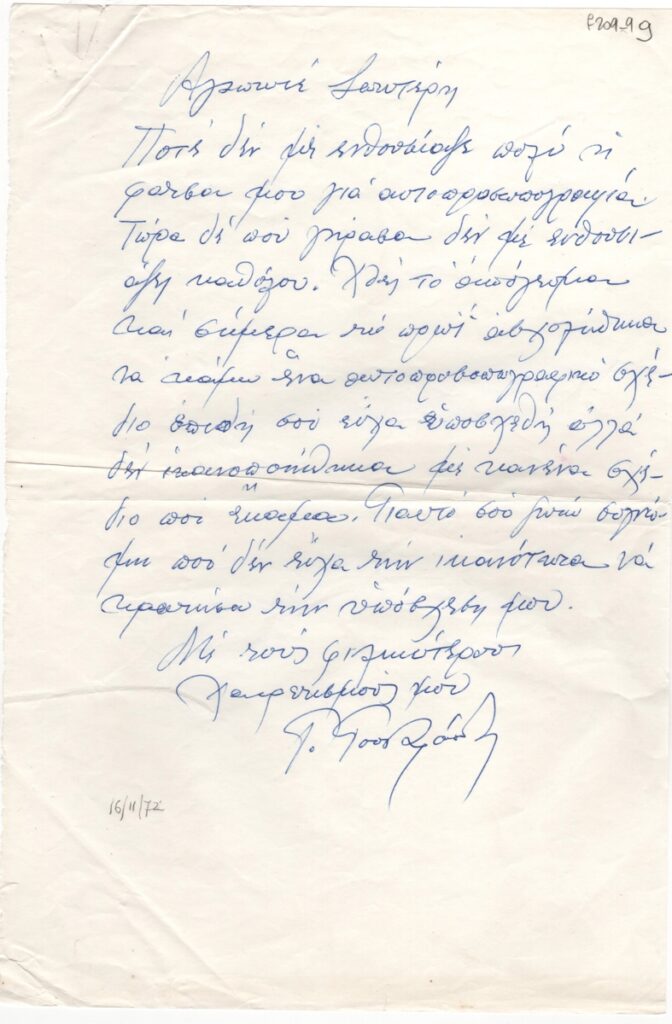 F209-99
Αγαπητέ Σωτήρη
Ποτέ δέν μέ ενθουσίαζε πολύ η
φάτσα μου γιά αυτοπροσωπογραφία.
Τώρα δέ πού γέρασα δέν μέ ενθουσι-
άζει καθόλου. Χθές τό απόγευμα
καί σήμερα τό πρωί ασχολήθηκα
να κάμω ἕνα αυτοπροσωπογραφικό σχέ-
διο επειδή σού είχα υποσχεθή αλλά
δέν ικανοποιήθηκα μέ κανένα σχέ-
διο πού έκαμα. Γιαυτό σού ζητώ συγνώ-
μη πού δέν είχα τήν ικανότητα νά
κρατήσω τήν υπόσχεση μου.
Μέ τούς φιλικώτερους
χαιρετισμούς μου
Γ.
16/11/72